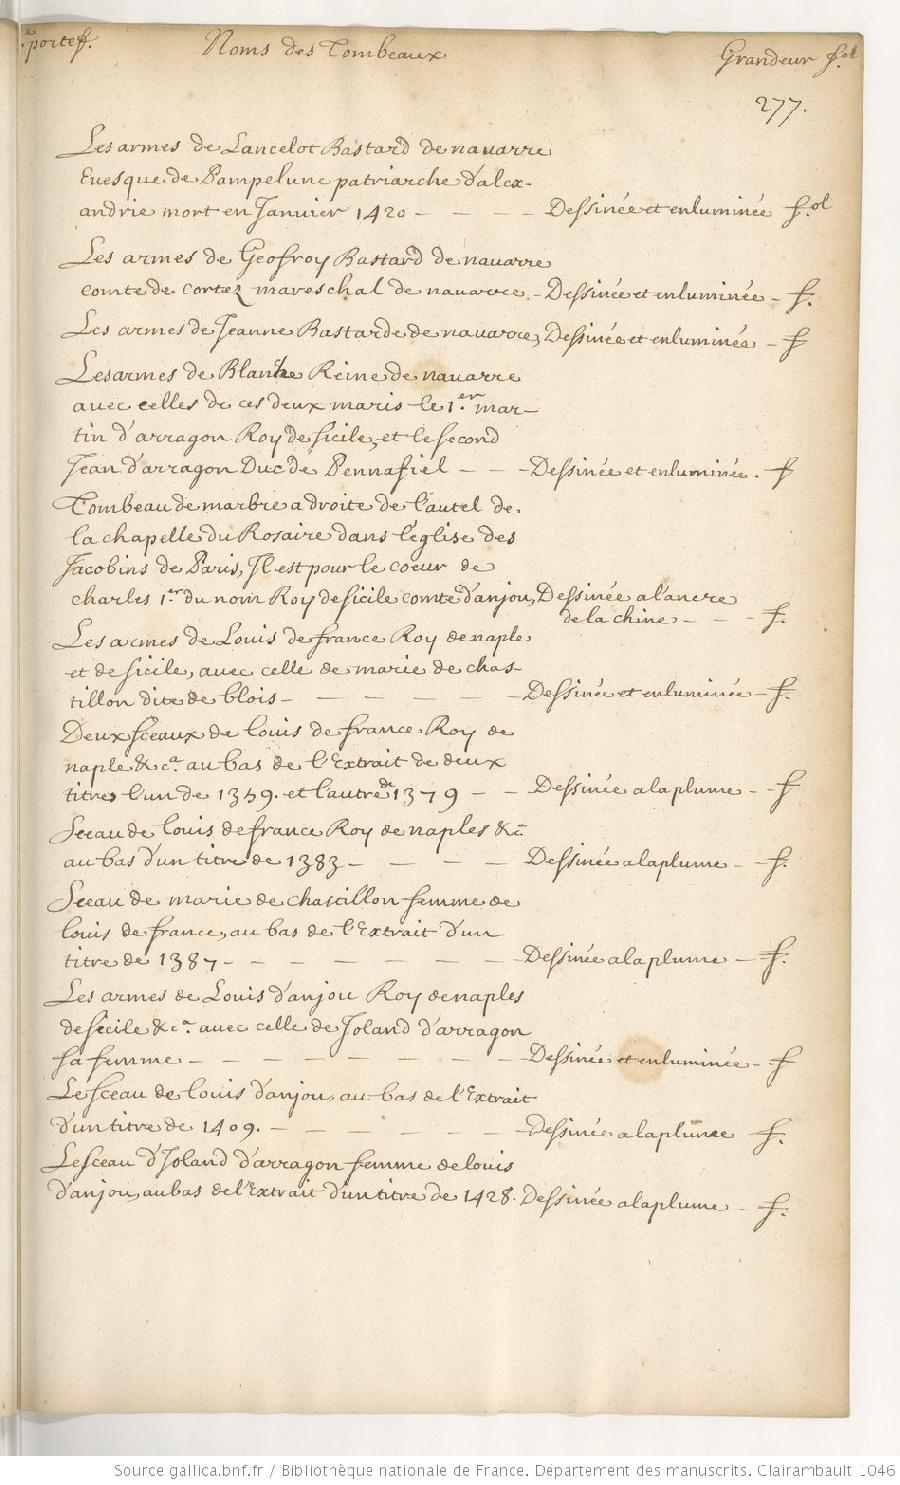 .e portef. Noms des Tombeaux Grandeur f.ol
277.
Les armes de Lancelot Bastard de nauarre
Euesque de Pampelune patriarche d'alex-
andrie mort en Januier 1420 - - - - Dessinée et enluminée f.ol
Les armes de Geofroy Bastard de nauarre
comte de cortez mareschal de nauarre. - Dessinée et enluminée - f.
Les armes de Jeanne Bastarde de nauarre, Dessinée et enluminée - f
Les armes de Blanche Reine de nauarre
auec celles de ces deux maris le 1.er mar-
tin d'arragon Roy de sicile, et le second
Jean d'arragon Duc de Pennafiel - - - Dessinée et enluminée. f
Tombeau de marbre a droite de l'autel de.
la chapelle du Rosaire dans l'eglise des
Jacobins de Paris, Il est pour le coeur de
charles 1.er du nom Roy de sicile comte d'anjou, Dessinée a l'ancre
de la chine - - - f.
Les armes de Louis de france Roy de naple
et de sicile, auec celle de marie de chas-
tillon dite de blois - - - - - - - Dessinée et enluminée - f.
Deux sceaux de louis de france Roy de
naple &c.a au bas de l'Extrait de deux
titres l'un de 1359. et l'autre de 1379 - - Dessinée a la plume - - f
Sceau de louis de france Roy de naples &c
au bas d'un titre de 1383 - - - - Dessinée a la plume - - f.
Sceau de marie de chastillon femme de
louis de france, au bas de l'Extrait d'un
titre de 1387 - - - - - - - - Dessinée a la plume - f.
Les armes de Louis d'anjou Roy de naples
de sicile &c.a auec celle de Joland d'arragon
sa femme - - - - - - - - Dessinée et enluminée - f
Le sceau de louis d'anjou au bas de l'Extrait
d'un titre de 1409. - - - - - - Dessinée a la plume f.
Le sceau d'Joland d'arragon femme de louis
d'anjou, au bas de l'Extrait d'un titre de 1428. Dessinée a la plume - f.
Source gallica.bnf.fr / Bibliothèque nationale de France. Département des manuscrits. Clairambault 1046